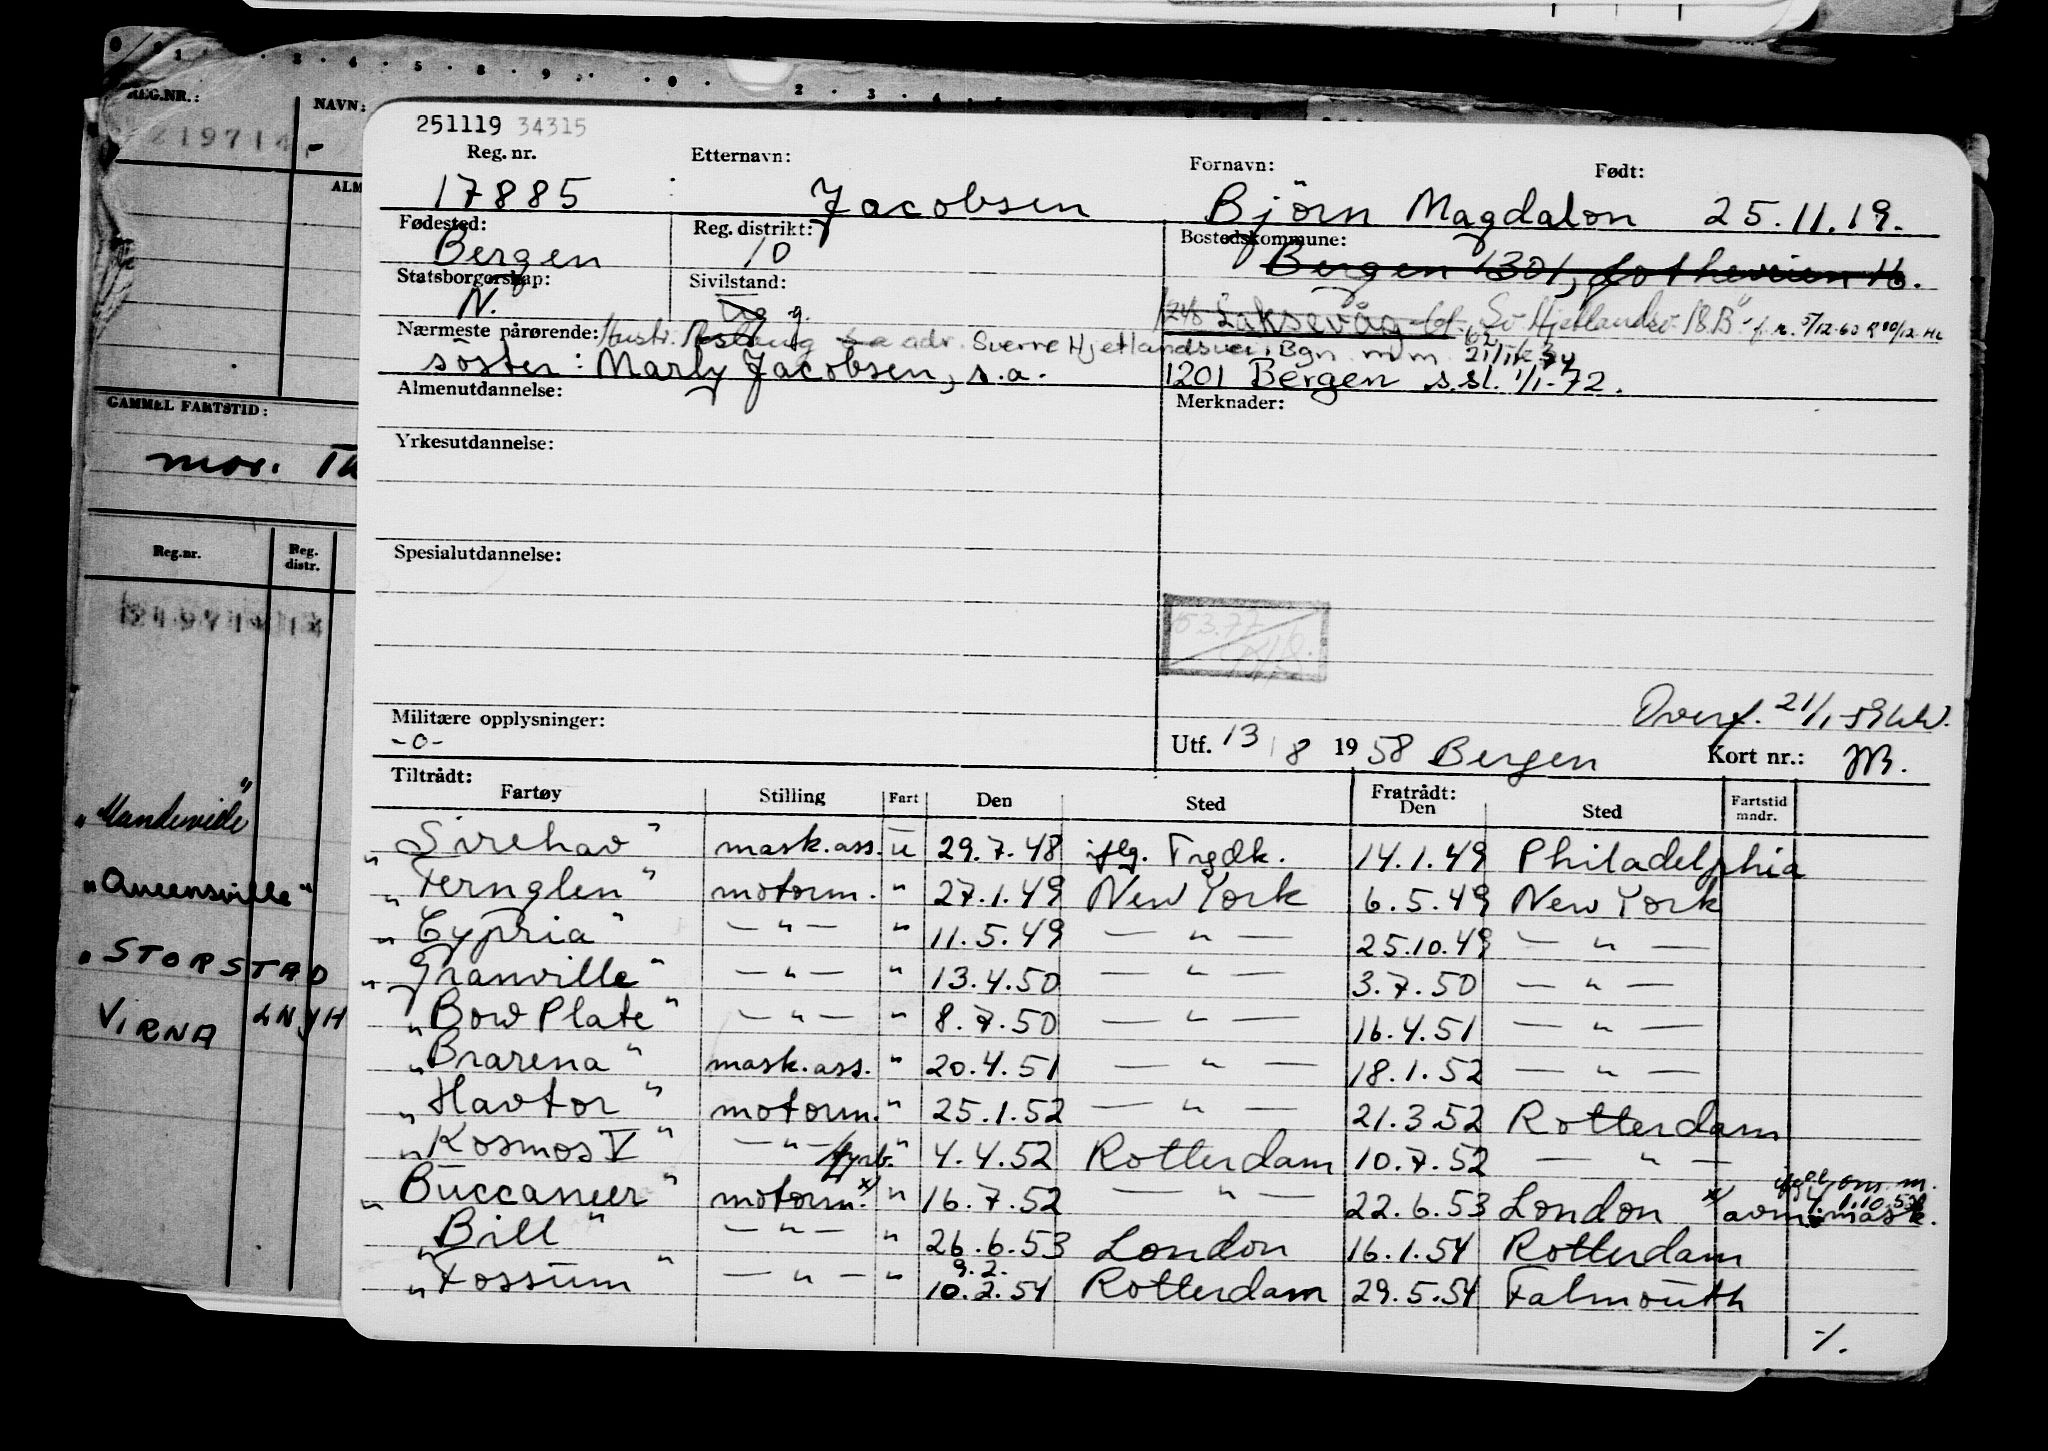 REG.NR.:
NAVN:
219714
ALM
GAMMEL FARTSTID:
mor.
Reg.nr.
Reg. distr.
"Mandeville"
"Queensville"
"STORSTAD
VIRNA LNJH
251119 34315
Reg. nr. Etternavn: Fornavn: Født:
17885 Jacobsen Björn Magdalon 25.11.19.
Fødested: Reg. distrikt: Bostedskommune:
Bergen 10 Bergen 1301,
Statsborgerskap: Sivilstand:
N. g. Laksevåg
Nærmeste pårørende: Hustr. adr. Sverre Hjetlandsvei, Bgn
söster: Marly Jacobsen, s.a. 1201 Bergen s.sl. 1/1-72.
Almenutdannelse: Merknader:
Yrkesutdannelse:
Spesialutdannelse:
Overf. 21/1-59
Militære opplysninger:
-o-
Utf. 13/8 1958 Bergen Kort nr.:
Tiltrådt: Fratrådt:
Fartøy Stilling Fart Den Sted Den Sted Fartstid mndr.
"Sirehav" mask.ass. u 29.7.48 iflg. Tngdk. 14.1.49 Philadelphia
"Fernglen" motorm. " 27.1.49 New York 6.5.49 New York
"Cypria" — " — " 11.5.49 — " — 25.10.49 — " —
"Granville" — " — " 13.4.50 — " — 3.7.50 — " —
"Bow Plate" — " — " 8.7.50 — " — 16.4.51 — " —
"Brarena" mask.ass. " 20.4.51 — " — 18.1.52 — " —
"Havtor" motorm. " 25.1.52 — " — 21.3.52 Rotterdam
"Kosmos V" — " — fyrb. " 4.4.52 Rotterdam 10.7.52 — " —
"Buccaneer" motorm. x) " 16.7.52 — " — 22.6.53 London x)
"Bill" — " — " 26.6.53 London 16.1.54 Rotterdam
9.2.
"Fossum" — " — " 10.2.54 Rotterdam 29.5.54 Falmouth
./.